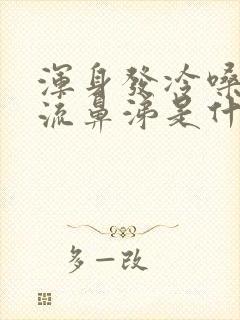 渾身發冷嗓
流鼻涕是什
多一改